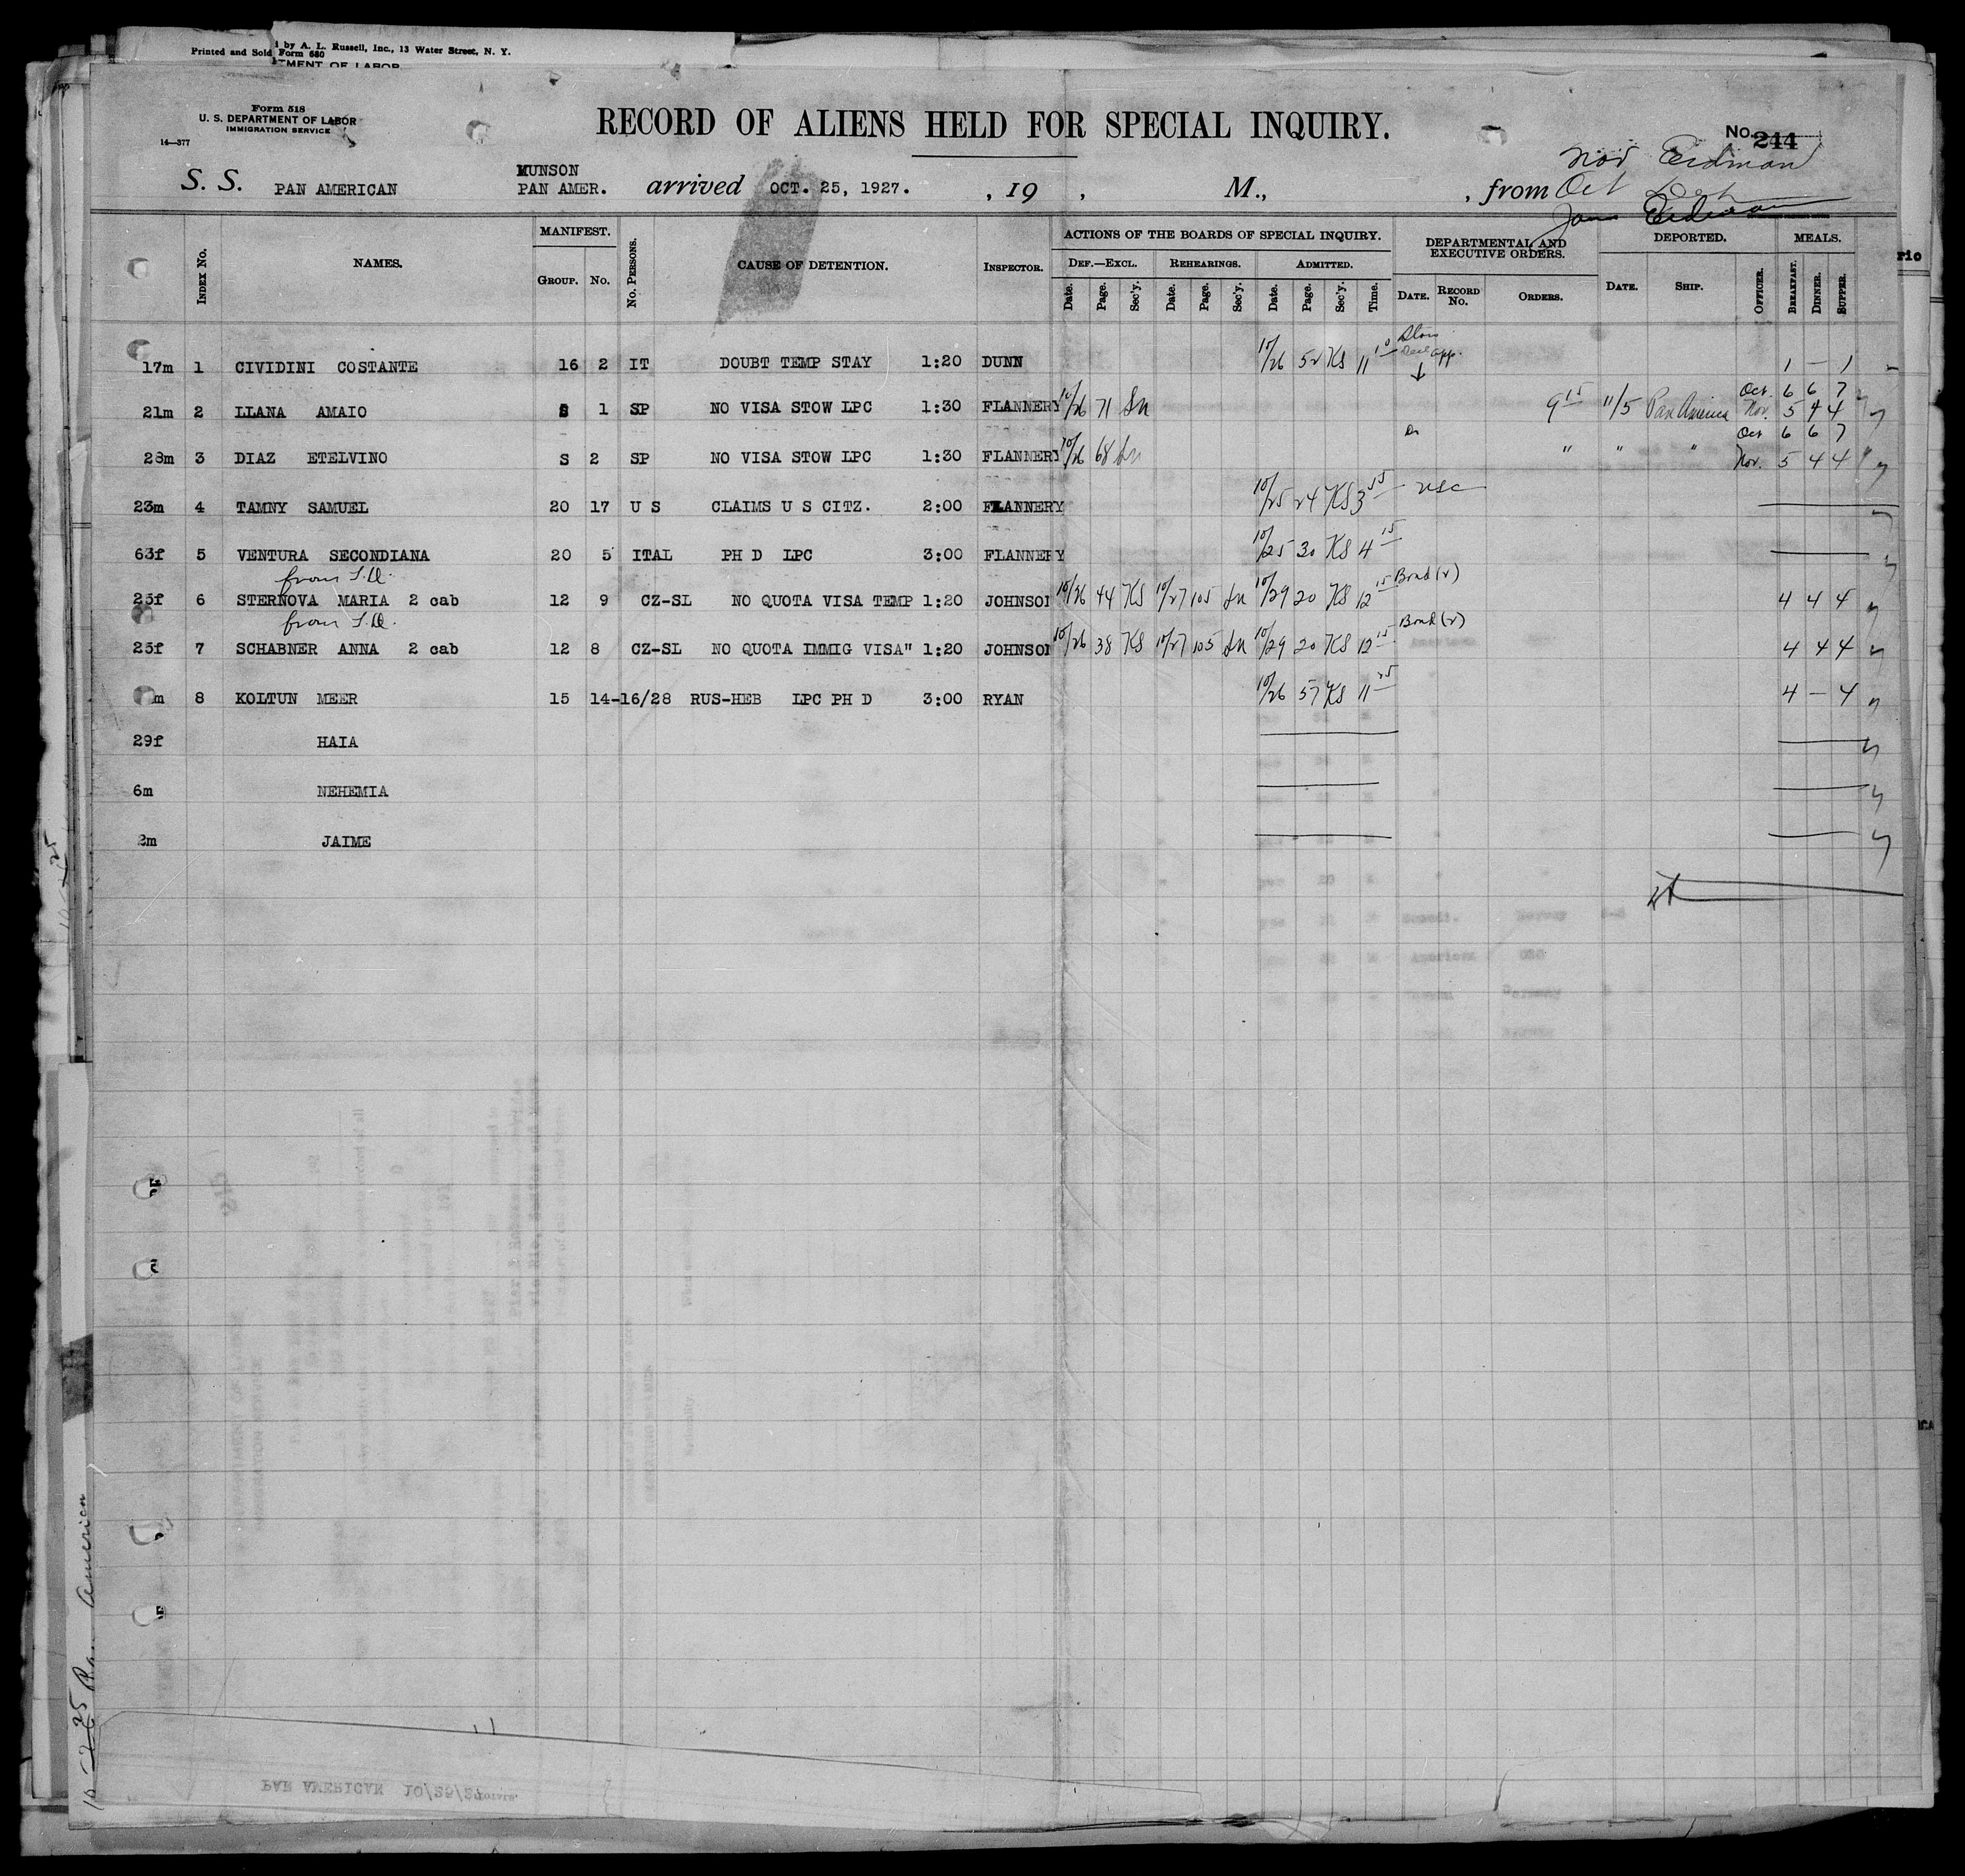 by A. L. Russell, Inc., 13 Water Street, N. Y.
Printed and Sold Form 680
TMENT OF LABOR
Form 518
U. S. DEPARTMENT OF LABOR
IMMIGRATION SERVICE
14—377
RECORD OF ALIENS HELD FOR SPECIAL INQUIRY.
No. 244
Nov Eidman
S. S. PAN AMERICAN MUNSON PAN AMER. arrived OCT. 25, 1927. , 19 , M., , from Oct
Eidman
INDEX No. NAMES. MANIFEST. GROUP. No. No. PERSONS. CAUSE OF DETENTION. INSPECTOR.
ACTIONS OF THE BOARDS OF SPECIAL INQUIRY.
DEF.—EXCL. Date. Page. Sec'y. REHEARINGS. Date. Page. Sec'y. ADMITTED. Date. Page. Sec'y. Time.
DEPARTMENTAL AND EXECUTIVE ORDERS. DATE. RECORD No. ORDERS.
DEPORTED. DATE. SHIP. OFFICER.
MEALS. BREAKFAST. DINNER. SUPPER.
rio
17m 1 CIVIDINI COSTANTE 16 2 IT DOUBT TEMP STAY 1:20 DUNN 10/26 52 KS 11 10 app. 1 — 1
21m 2 LLANA AMAIO S 1 SP NO VISA STOW LPC 1:30 FLANNERY 10/26 71 Sn 9 15 11/5 Pan America Oct. 6 6 7
Nov. 5 4 4
28m 3 DIAZ ETELVINO S 2 SP NO VISA STOW LPC 1:30 FLANNERY 10/26 68 Sn " " " Oct 6 6 7
Nov. 5 4 4
23m 4 TAMNY SAMUEL 20 17 U S CLAIMS U S CITZ. 2:00 FLANNERY 10/25 24 KS 3 55 usc
63f 5 VENTURA SECONDIANA 20 5 ITAL PH D LPC 3:00 FLANNERY 10/25 30 KS 4 15
from S.D.
25f 6 STERNOVA MARIA 2 cab 12 9 CZ-SL NO QUOTA VISA TEMP 1:20 JOHNSON 10/26 44 KS 10/27 105 Sn 10/29 20 KS 12 15 Bond (r) 4 4 4
from S.D.
25f 7 SCHABNER ANNA 2 cab 12 8 CZ-SL NO QUOTA IMMIG VISA" 1:20 JOHNSON 10/26 38 KS 10/27 105 Sn 10/29 20 KS 12 15 Bond (r) 4 4 4
m 8 KOLTUN MEER 15 14-16/28 RUS-HEB LPC PH D 3:00 RYAN 10/26 57 KS 11 25 4 — 4
29f HAIA
6m NEHEMIA
2m JAIME
10-25 Pan American
PAN AMERICAN 10/25/27